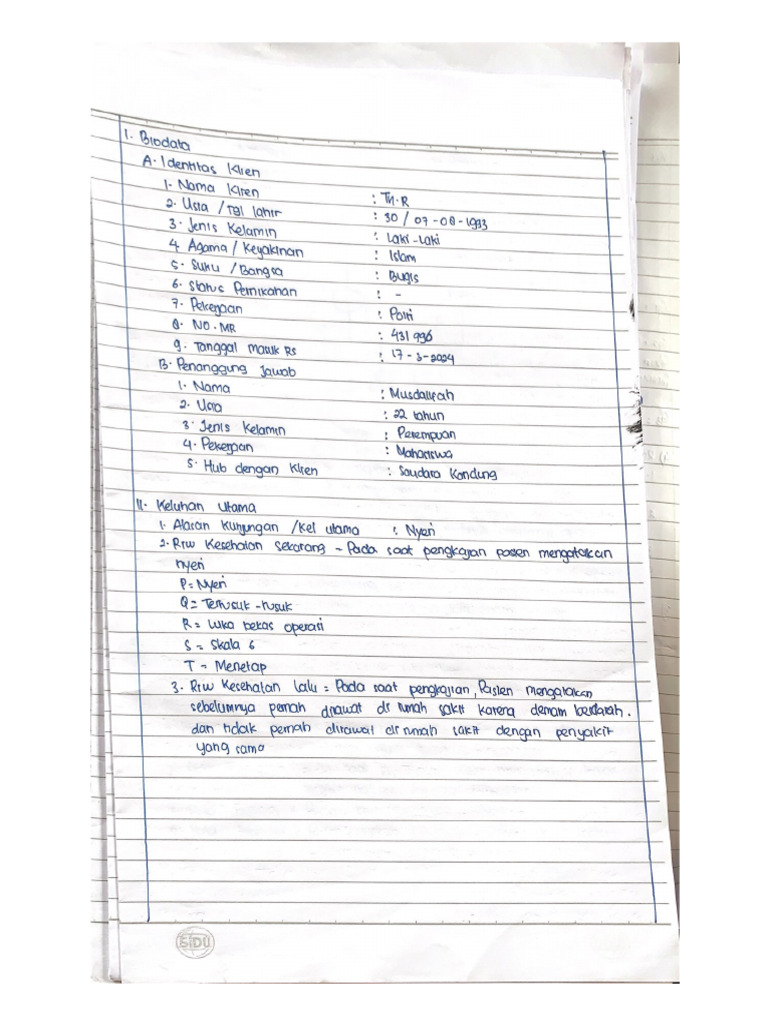 I. Biodata
A. Identitas Klien
1. Nama Klien : Tn. R
2. Usia / Tgl lahir : 30 / 07-08-1993
3. Jenis Kelamin : Laki-Laki
4. Agama / Keyakinan : Islam
5. Suku / Bangsa : Bugis
6. Status Pernikahan : -
7. Pekerjaan : Polri
8. NO. MR : 431 996
9. Tanggal masuk RS : 17-3-2024
B. Penanggung Jawab
1. Nama : Musdaliyah
2. Usia : 22 tahun
3. Jenis Kelamin : Perempuan
4. Pekerjaan : Mahasiswa
5. Hub dengan Klien : Saudara Kandung
II. Keluhan Utama
1. Alasan Kunjungan / Kel utama : Nyeri
2. Riw Kesehatan sekarang - Pada saat pengkajian pasien mengatakan
nyeri
P = Nyeri
Q = Tertusuk-tusuk
R = Luka bekas operasi
S = Skala 6
T = Menetap
3. Riw Kesehatan lalu = Pada saat pengkajian, Pasien mengatakan
sebelumnya pernah dirawat di rumah sakit karena demam berdarah.
dan tidak pernah dirawat di rumah sakit dengan penyakit
yang sama
SIDU